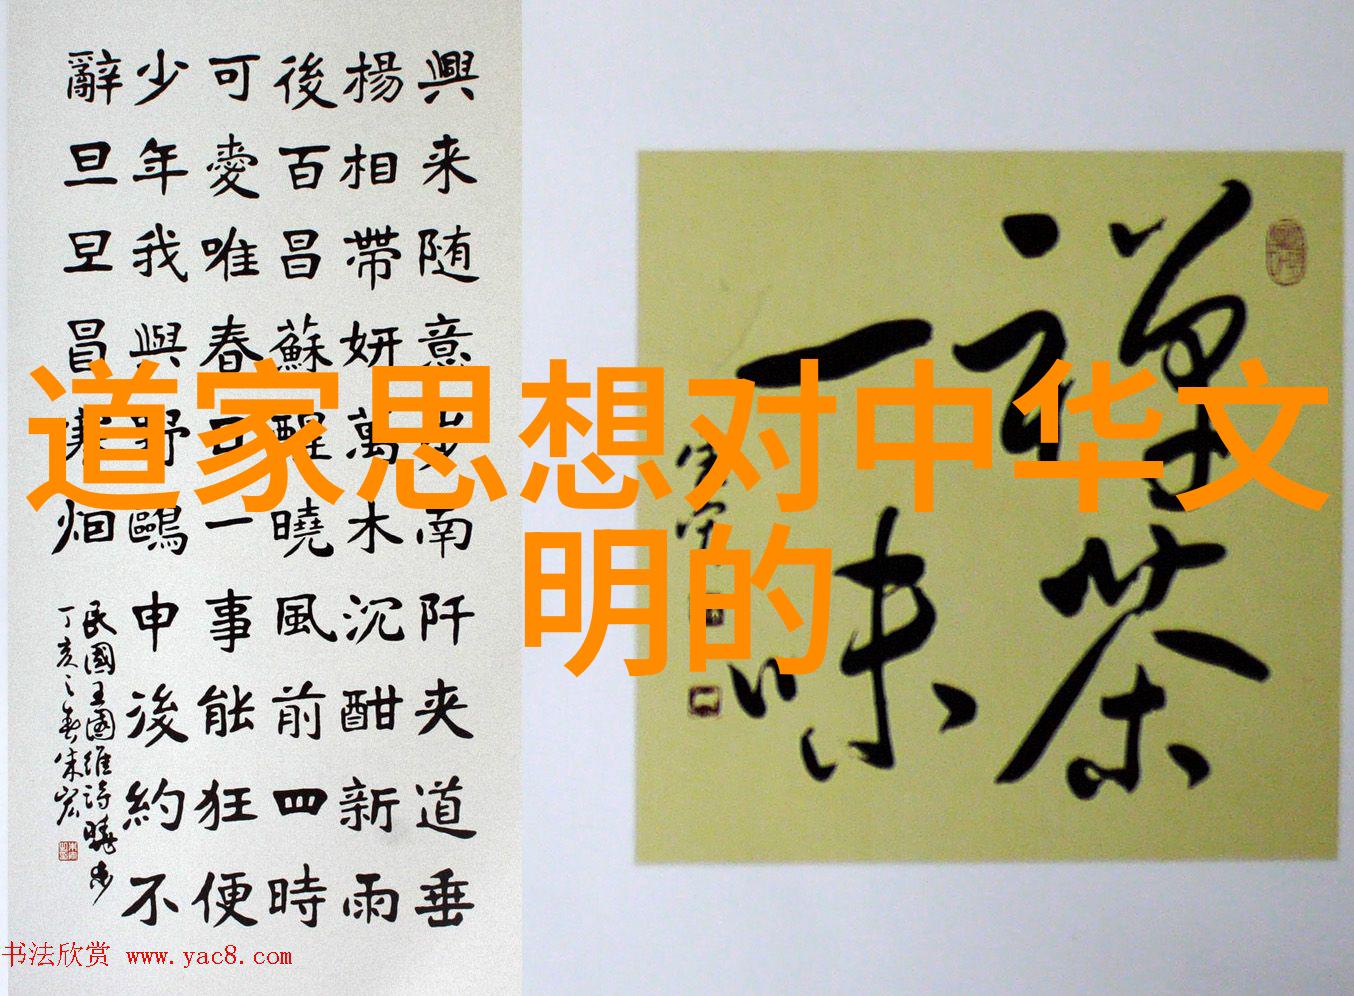 道家思想对中华文
明的
興来随意步南阡夹道垂
楊相帶妍萬木沉酣新雨
後百昌蘇醒曉風前四時
可愛唯春日一事能狂便
少年我與野鷗申後約不
辭旦旦冒寒烟
民國王國維詩曉步
丁亥之春朱宏
禅茶
一味
书法欣赏 www.yac8.com